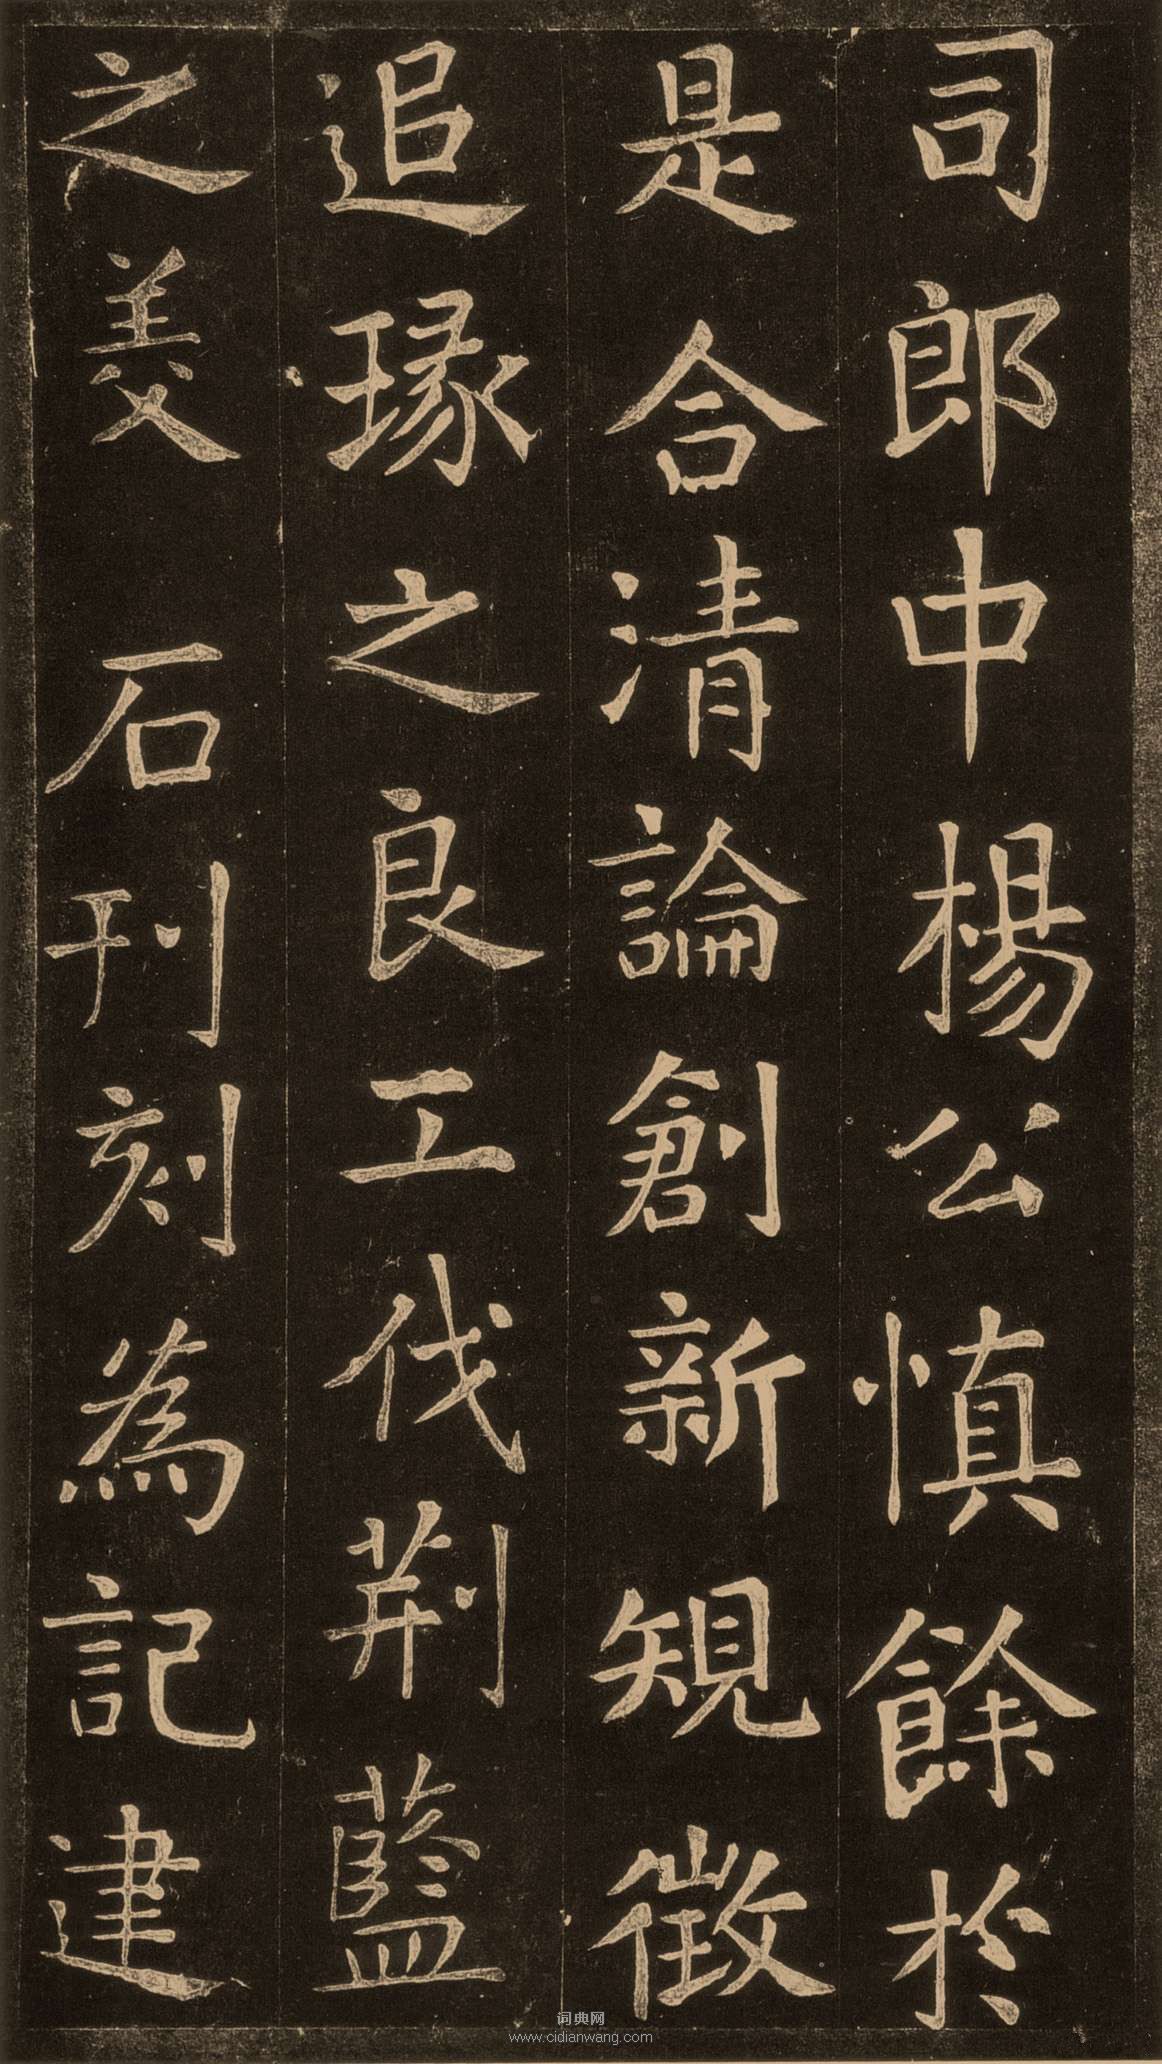 司郎中楊公慎餘於
是合清論創新規徵
追琢之良工伐荊藍
之美 石刊刻為記建
词典网
www.cidianwang.com